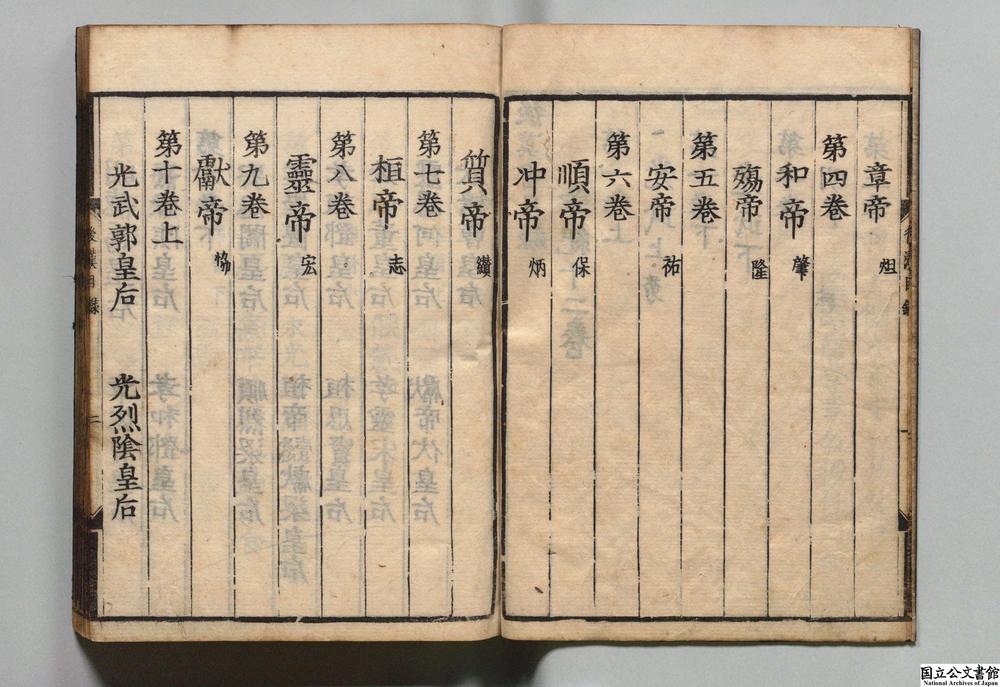 章帝 炟
第四卷
和帝 肇
殤帝 隆
第五卷
安帝 祜
第六卷
順帝 保
冲帝 炳
質帝 纘
第七卷
桓帝 志
第八卷
靈帝 宏
第九卷
獻帝 恊
第十卷上
光武郭皇后 光烈陰皇后
後漢目錄
二
国立公文書館
National Archives of Japan